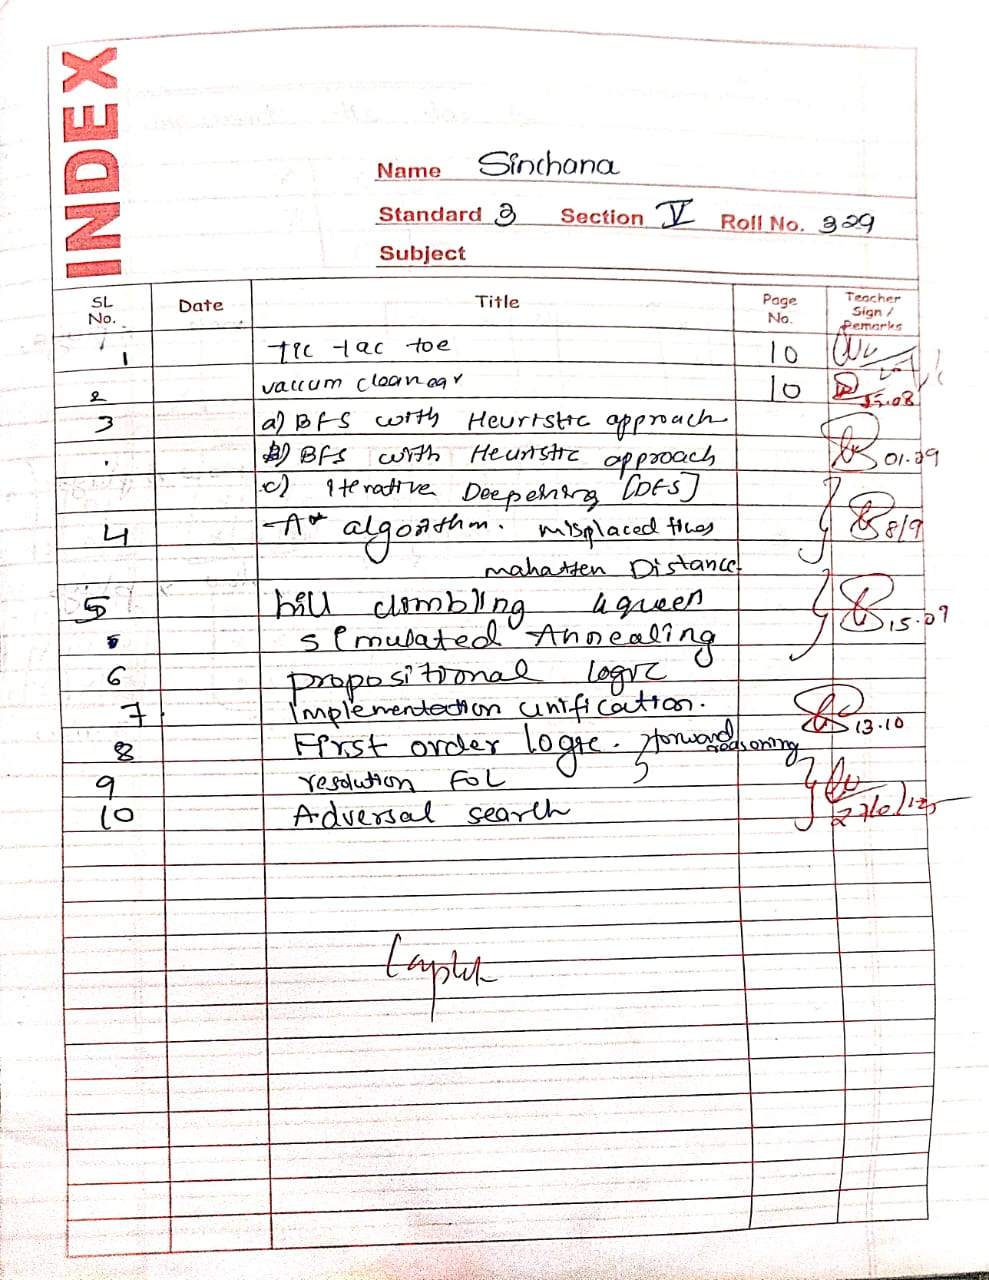 INDEX
Name Sinchana
Standard 3 Section V Roll No. 329
Subject
SL No. Date Title Page No. Teacher Sign / Remarks
1 tic tac toe 10
2 vaccum cleanear 10 15.08
3 a) BFS with Heuristic approach
b) BFS with Heuristic approach 01.09
c) iterative Deepening [DFS]
4 A* algorithm. misplaced tiles 8/9
mahatten Distance
5 hill climbling 4 queen 15.09
simulated Annealing
6 propositional logic
7 Implementation unification. 13.10
8 First order logic. forward reasoning
9 resolution FOL
10 Adversal search